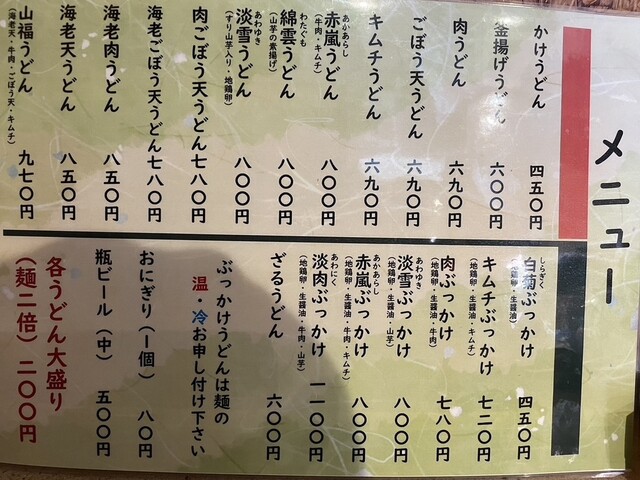 メニュー
かけうどん 四五〇円
釜揚げうどん 六〇〇円
肉うどん 六九〇円
ごぼう天うどん 六九〇円
キムチうどん 六九〇円
あかあらし
赤嵐うどん 八〇〇円
(牛肉・キムチ)
わたぐも
綿雲うどん 八〇〇円
(山芋の素揚げ)
あわゆき
淡雪うどん 八〇〇円
(すり山芋入り・地鶏卵)
肉ごぼう天うどん 七八〇円
海老ごぼう天うどん 七八〇円
海老肉うどん 八五〇円
海老天うどん 八五〇円
山福うどん 九七〇円
(海老天・牛肉・ごぼう天・キムチ)
しらぎく
白菊ぶっかけ 四五〇円
(地鶏卵・生醤油)
キムチぶっかけ 七二〇円
(地鶏卵・生醤油・キムチ)
肉ぶっかけ 七八〇円
(地鶏卵・生醤油・牛肉)
あわゆき
淡雪ぶっかけ 八〇〇円
(地鶏卵・生醤油・山芋)
あかあらし
赤嵐ぶっかけ 八〇〇円
(地鶏卵・生醤油・牛肉・キムチ)
あわにく
淡肉ぶっかけ 一一〇〇円
(地鶏卵・生醤油・牛肉・山芋)
ざるうどん 六〇〇円
ぶっかけうどんは麺の
温・冷お申し付け下さい
おにぎり(1個) 八〇円
瓶ビール(中) 五〇〇円
各うどん大盛り
(麺二倍) 二〇〇円